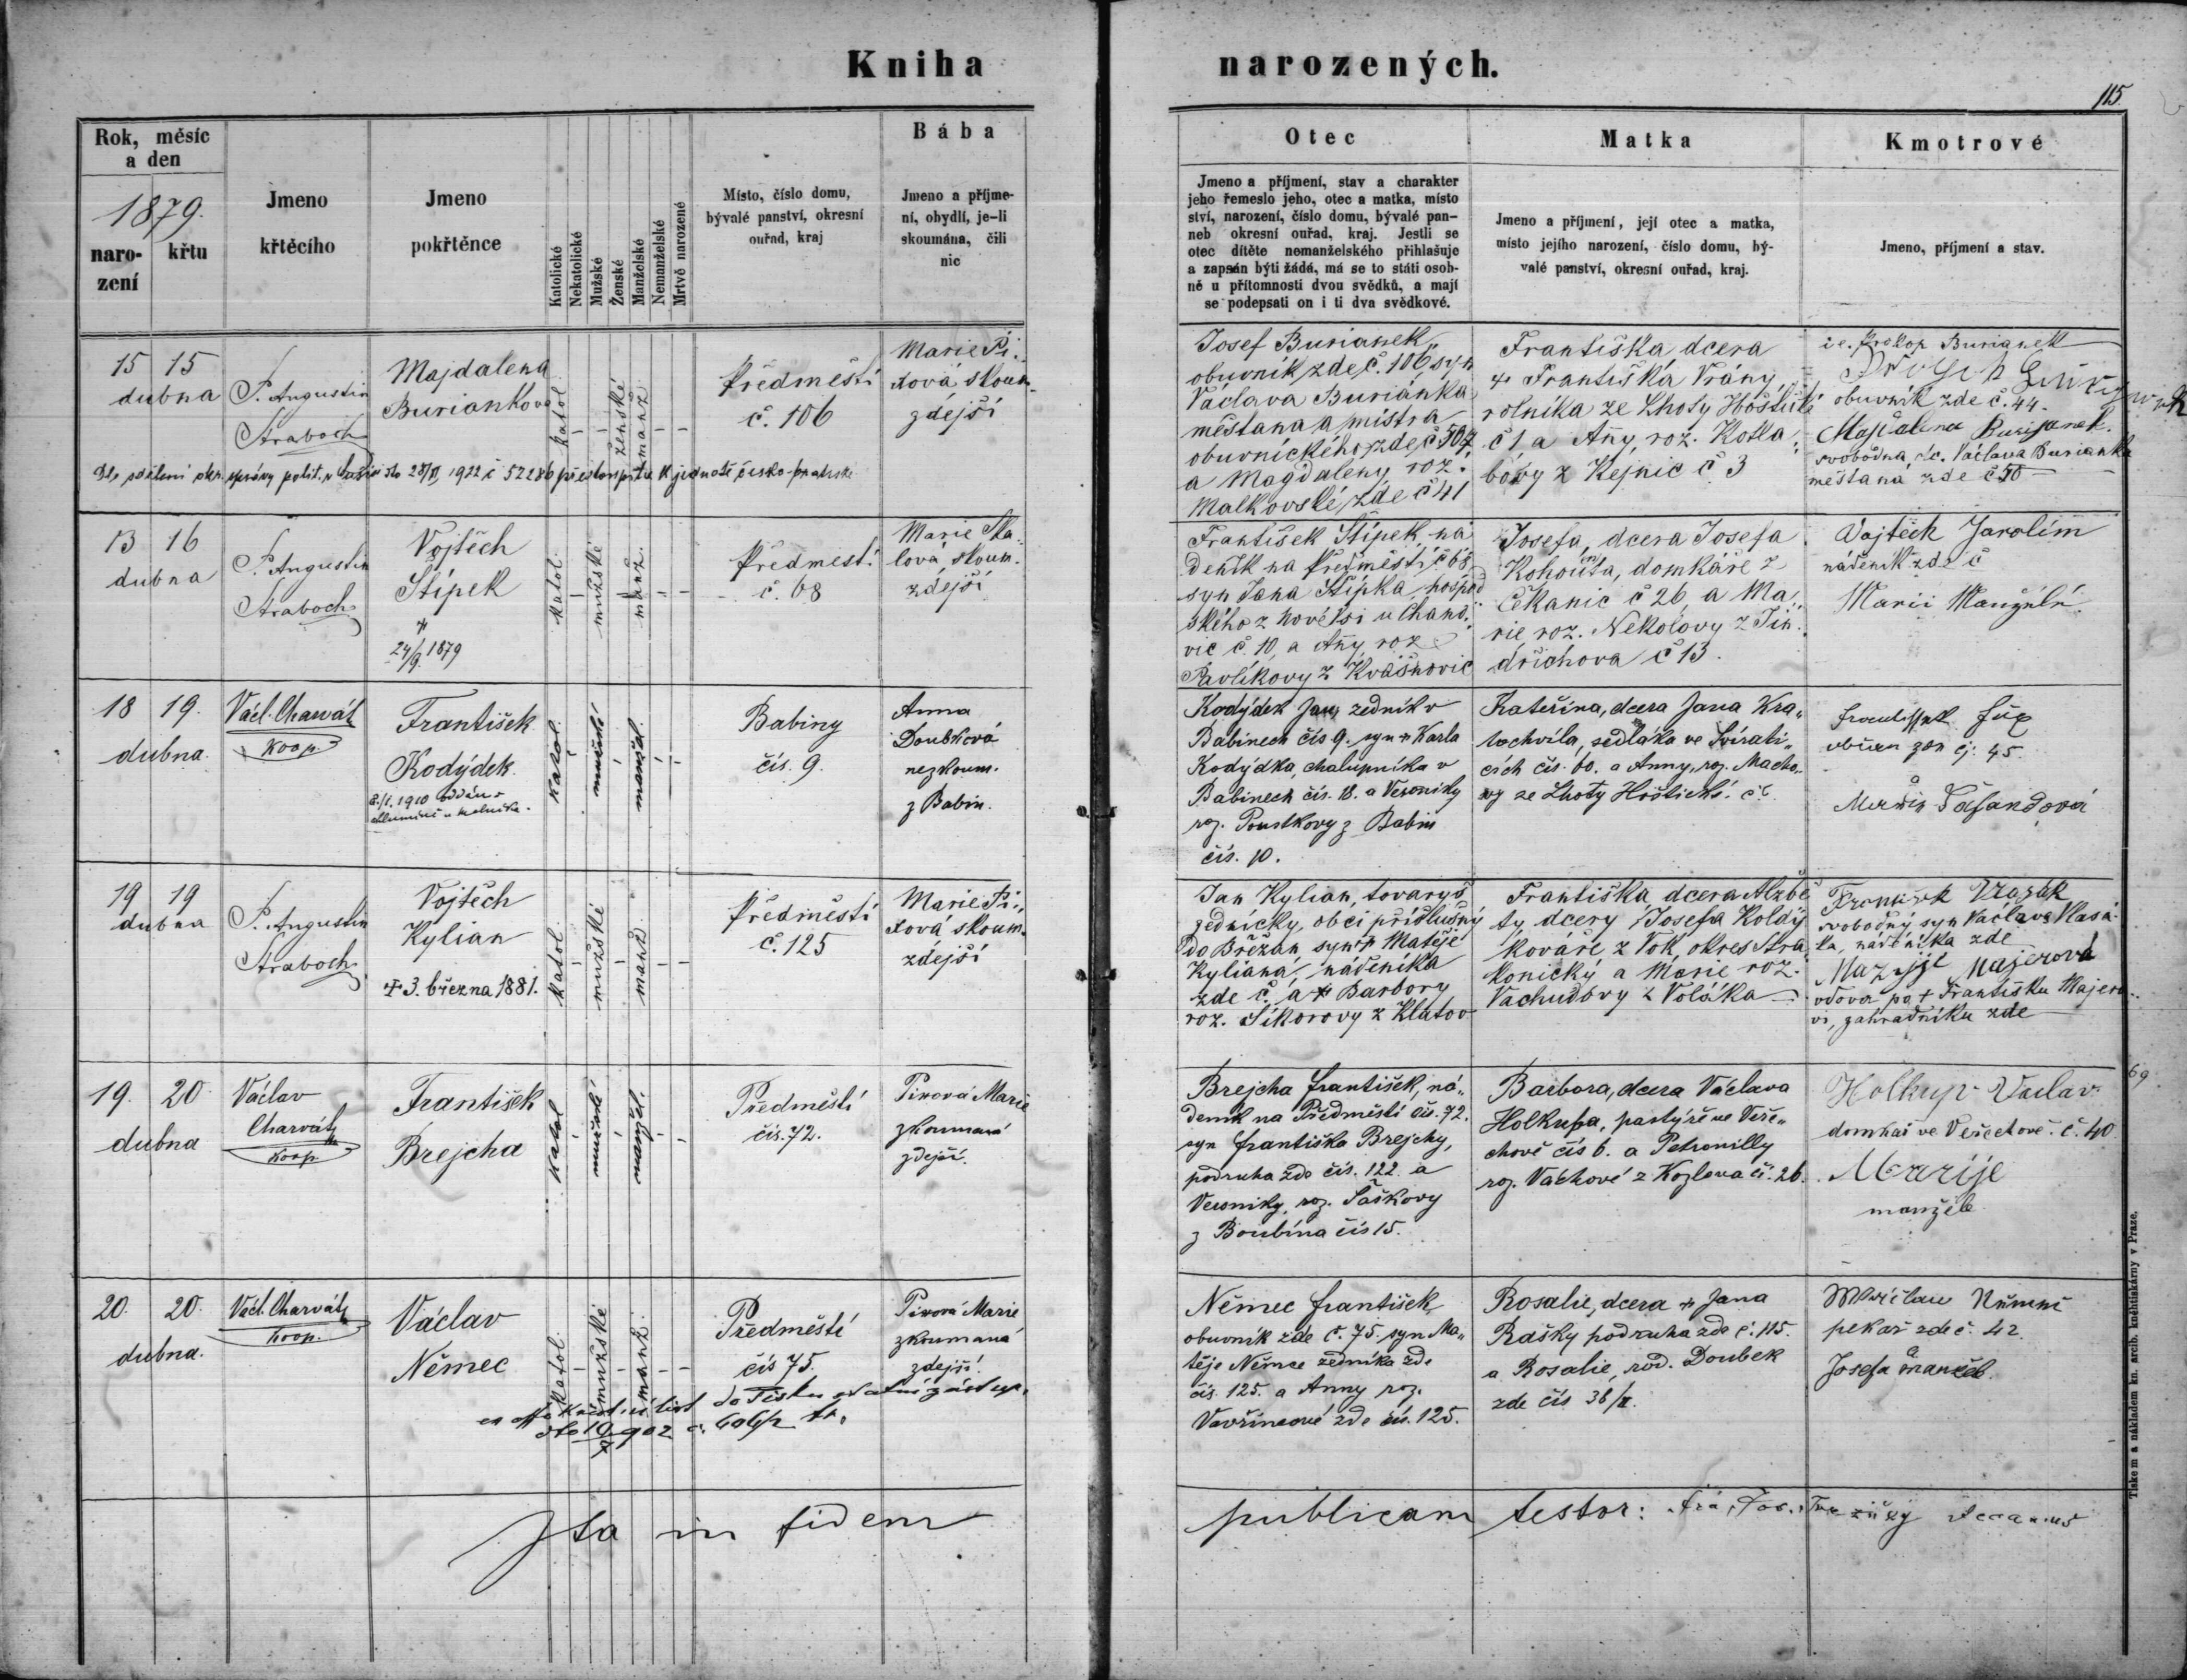 Kniha narozených.
115
Rok, měsíc a den
1879.
narození
křtu
Jmeno křtěcího
Jmeno pokřtěnce
Katolické
Nekatolické
Mužské
Ženské
Manželské
Nemanželské
Mrtvě narozené
Místo, číslo domu, bývalé panství, okresní ouřad, kraj
Bába
Jmeno a příjmení, obydlí, je-li skoumána, čili nic
Otec
Jmeno a příjmení, stav a charakter
jeho řemeslo jeho, otec a matka, místo
ství, narození, číslo domu, bývalé pan-
neb okresní ouřad, kraj. Jestli se
otec dítěte nemanželského přihlašuje
a zapsán býti žádá, má se to státi osob-
ně u přítomnosti dvou svědků, a mají
se podepsati on i ti dva svědkové.
Matka
Jmeno a příjmení, její otec a matka,
místo jejího narození, číslo domu, bý-
valé panství, okresní ouřad, kraj.
Kmotrové
Jmeno, příjmení a stav.
15 15
dubna
P. Augustin
Straboch
Majdalena
Buriankova
katol
ženské
manž
Předměstí
č. 106
Marie Pi„
xová skoum.
zdejší
Josef Burianek,
obuvník zde č. 106 syn
Václava Buriánka
měštana a mistra
obuvnického zde č 50
a Magdaleny roz.
Malkovské zde č 41
Františka dcera
† Františka Vrány
rolníka ze Lhoty Hoštické
č 1 a Anny, roz. Kotla„
bóvy z Kejnic č 3
Prokop Burianek
obuvník zde č. 44.
Majdalena Burijanek.
svobodná dc. Václava Burianka
měštana zde č 50
1922 č 52286 k jednotě česko-bratrské
13 16
dubna
P. Augustin
Straboch
Vojtěch
Štípek
†
24/9. 1879
katol
mužské
manž.
Předmestí
č. 68
Marie Ska„
lová skoum.
zdejší
František Štípek ná
deník na Předměstí č 68
syn Jana Štípka, hospod
ského z Nové Vsi u Chano„
vic č. 10, a Anny, roz
Pavlíkovy z Kvášňovic
Josefa, dcera Josefa
Kohouta, domkáře z
Čekanic č 26 a Ma„
rie roz. Nekolovy z Jin„
dřichova č 13.
Vojtěch Jarolím
nádeník zde č
Marii Manželé.
18 19.
dubna.
Václ. Charvát
koop
František
Kodýdek.
katol.
mužské
manžel.
Babiny
čís. 9.
Anna
Doubková
nezkoum.
z Babin.
Kodýdek Jan, zedník v
Babinech čís 9. syn † Karla
Kodýdka, chalupníka v
Babinech čís. 18. a Veroniky
roz. Poustkovy z Babin
čís. 10.
Kateřina, dcera Jana Kra„
tochvíla, sedláka ve Svírati„
cích čís. 60. a Anny, roz. Macho„
vy ze Lhoty Hoštické. č 6
45.
19 19
dubna
P. Augustin
Straboch
Vojtěch
Kylian
† 3. března 1881.
katol
mužské
manž
Předměstí
č. 125
Marie Pi„
xová skoum.
zdejší
Jan Kylian, tovaryš
zednický, obci příslušný
do Břežan, syn † Matěje
Kyliana, nádeníka
zde č. a † Barbory
roz. Síkorovy z Klatov
Františka dcera Alžbě
ty, dcery Josefa Koldy
kováře z Vok, okres Stra
konický a Marie roz.
Vachudovy z Voláka
svobodný syn Václava
ka, nádeníka zde
Majerová
vdova po † Františku Majero„
vi, zahradníku zde
19. 20.
dubna
Václav
Charvát
koop.
František
Brejcha
katol
mužské
manžel.
Předměstí
čís. 72.
Pixová Marie
zkoumaná
zdejší.
Brejcha František, ná„
deník na Předměstí čís. 72.
syn Františka Brejchy,
podruha zde čís. 122. a
Veroniky, roz. Šaškovy
z Boubína čís 15.
Barbora, dcera Václava
Holkupa, pastýře ve Veře„
chově čís 6. a Petronilly
roz. Váchové z Kozlova čí. 26.
Holkup Vaclav
domkař ve Veřechově. č. 40
Marije
manželé
69
20. 20.
dubna.
Václ. Charvát
koop.
Václav
Němec
katol
mužské
manž.
Předměstí
čís 75.
Pixová Marie
zkoumaná
zdejší.
Němec František,
obuvník zde č. 75. syn Ma„
těje Němce zedníka zde
čís. 125. a Anny roz.
Vavřincové zde čís. 125.
Rosalie, dcera † Jana
Rašky podruha zde č. 115.
a Rosalie, rod. Doubek
zde čís 38/II.
pekař zde č. 42.
Josefa manžel.
Ita in fidem publicam testor:
Tiskem a nákladem kn. arcib. knihtiskárny v Praze.